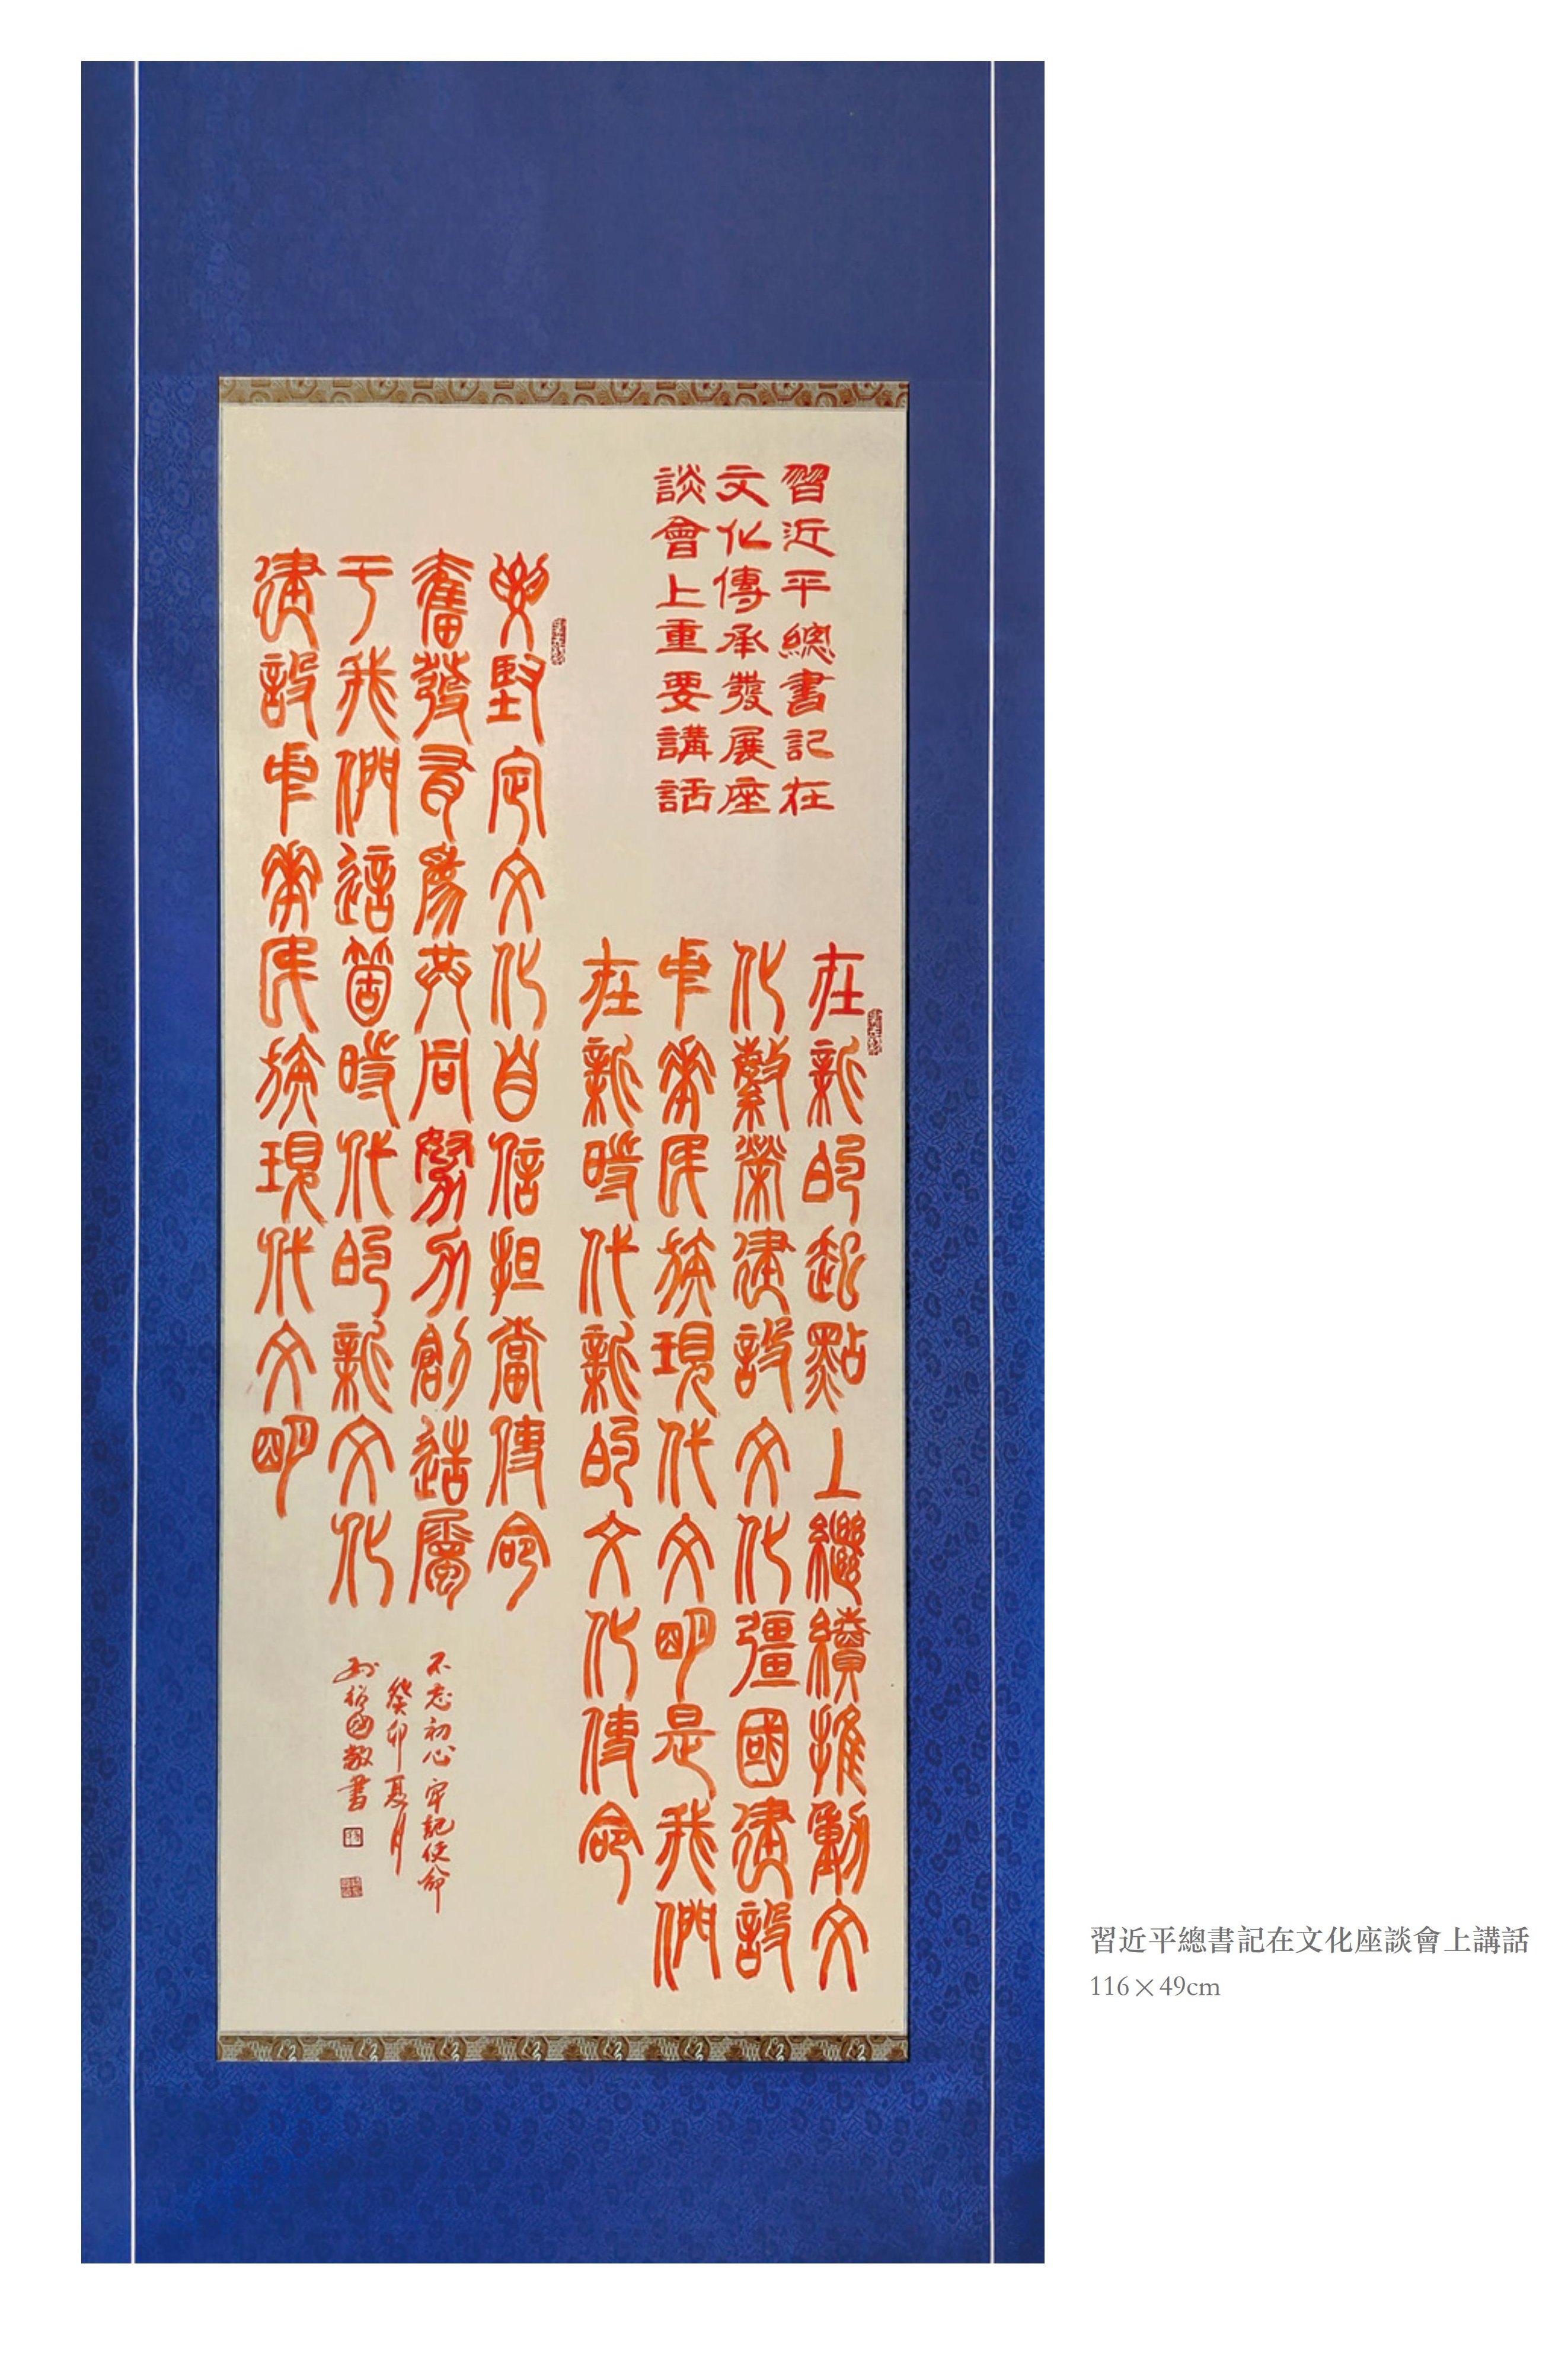 習近平總書記在
文化傳承發展座
談會上重要講話
在新的起點上繼續推動文
化繁榮建設文化彊國建設
中華民族現代文明是我們
在新時代新的文化使命
要堅定文化自信担當使命
奮發有爲共同努力創造屬
于我們這箇時代的新文化
建設中華民族現代文明
不忘初心牢記使命
癸卯夏月
敬書
習近平總書記在文化座談會上講話
116×49cm